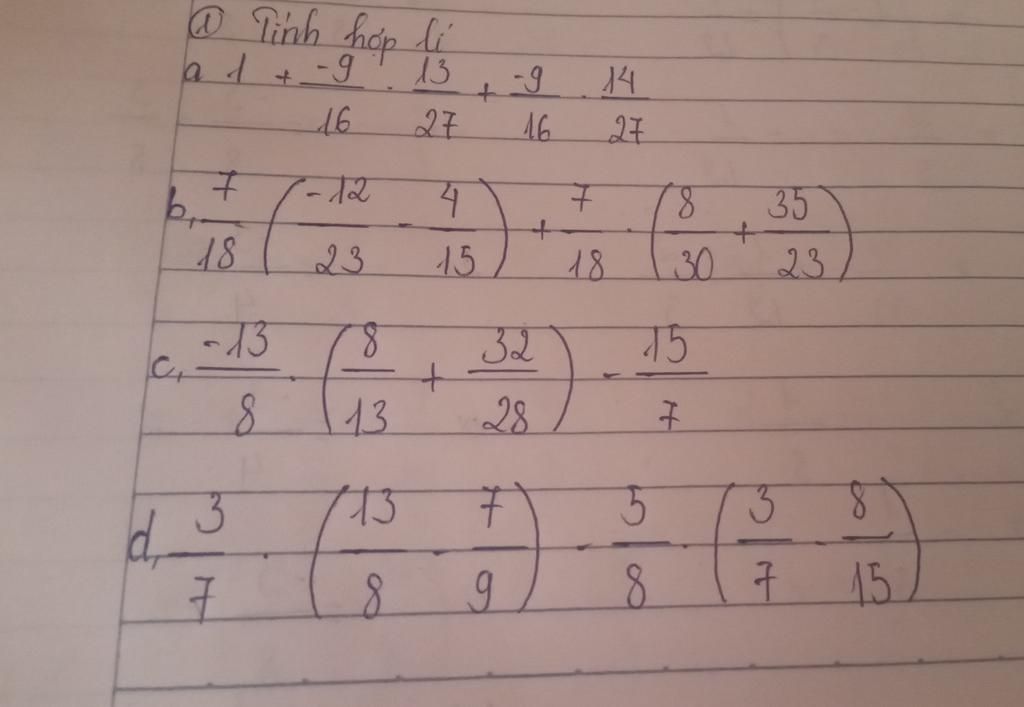 ① Tính hợp lí
a 1 + \frac{-9}{16} . \frac{13}{27} + \frac{-9}{16} . \frac{14}{27}
b, \frac{7}{18} ( \frac{-12}{23} - \frac{4}{15} ) + \frac{7}{18} . ( \frac{8}{30} + \frac{35}{23} )
c, \frac{-13}{8} . ( \frac{8}{13} + \frac{32}{28} ) - \frac{15}{7}
d, \frac{3}{7} . ( \frac{13}{8} - \frac{7}{9} ) - \frac{5}{8} . ( \frac{3}{7} - \frac{8}{15} )